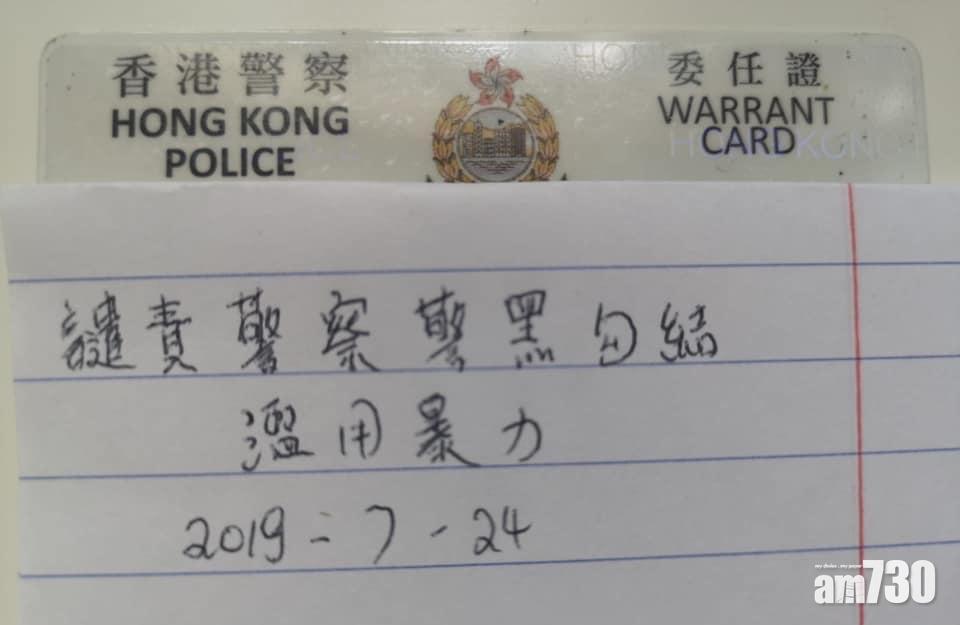 香港警察
HONG KONG
POLICE
委任證
WARRANT
CARD
譴責警察警黑勾結
濫用暴力
2019-7-24
my choice . my paper
am730